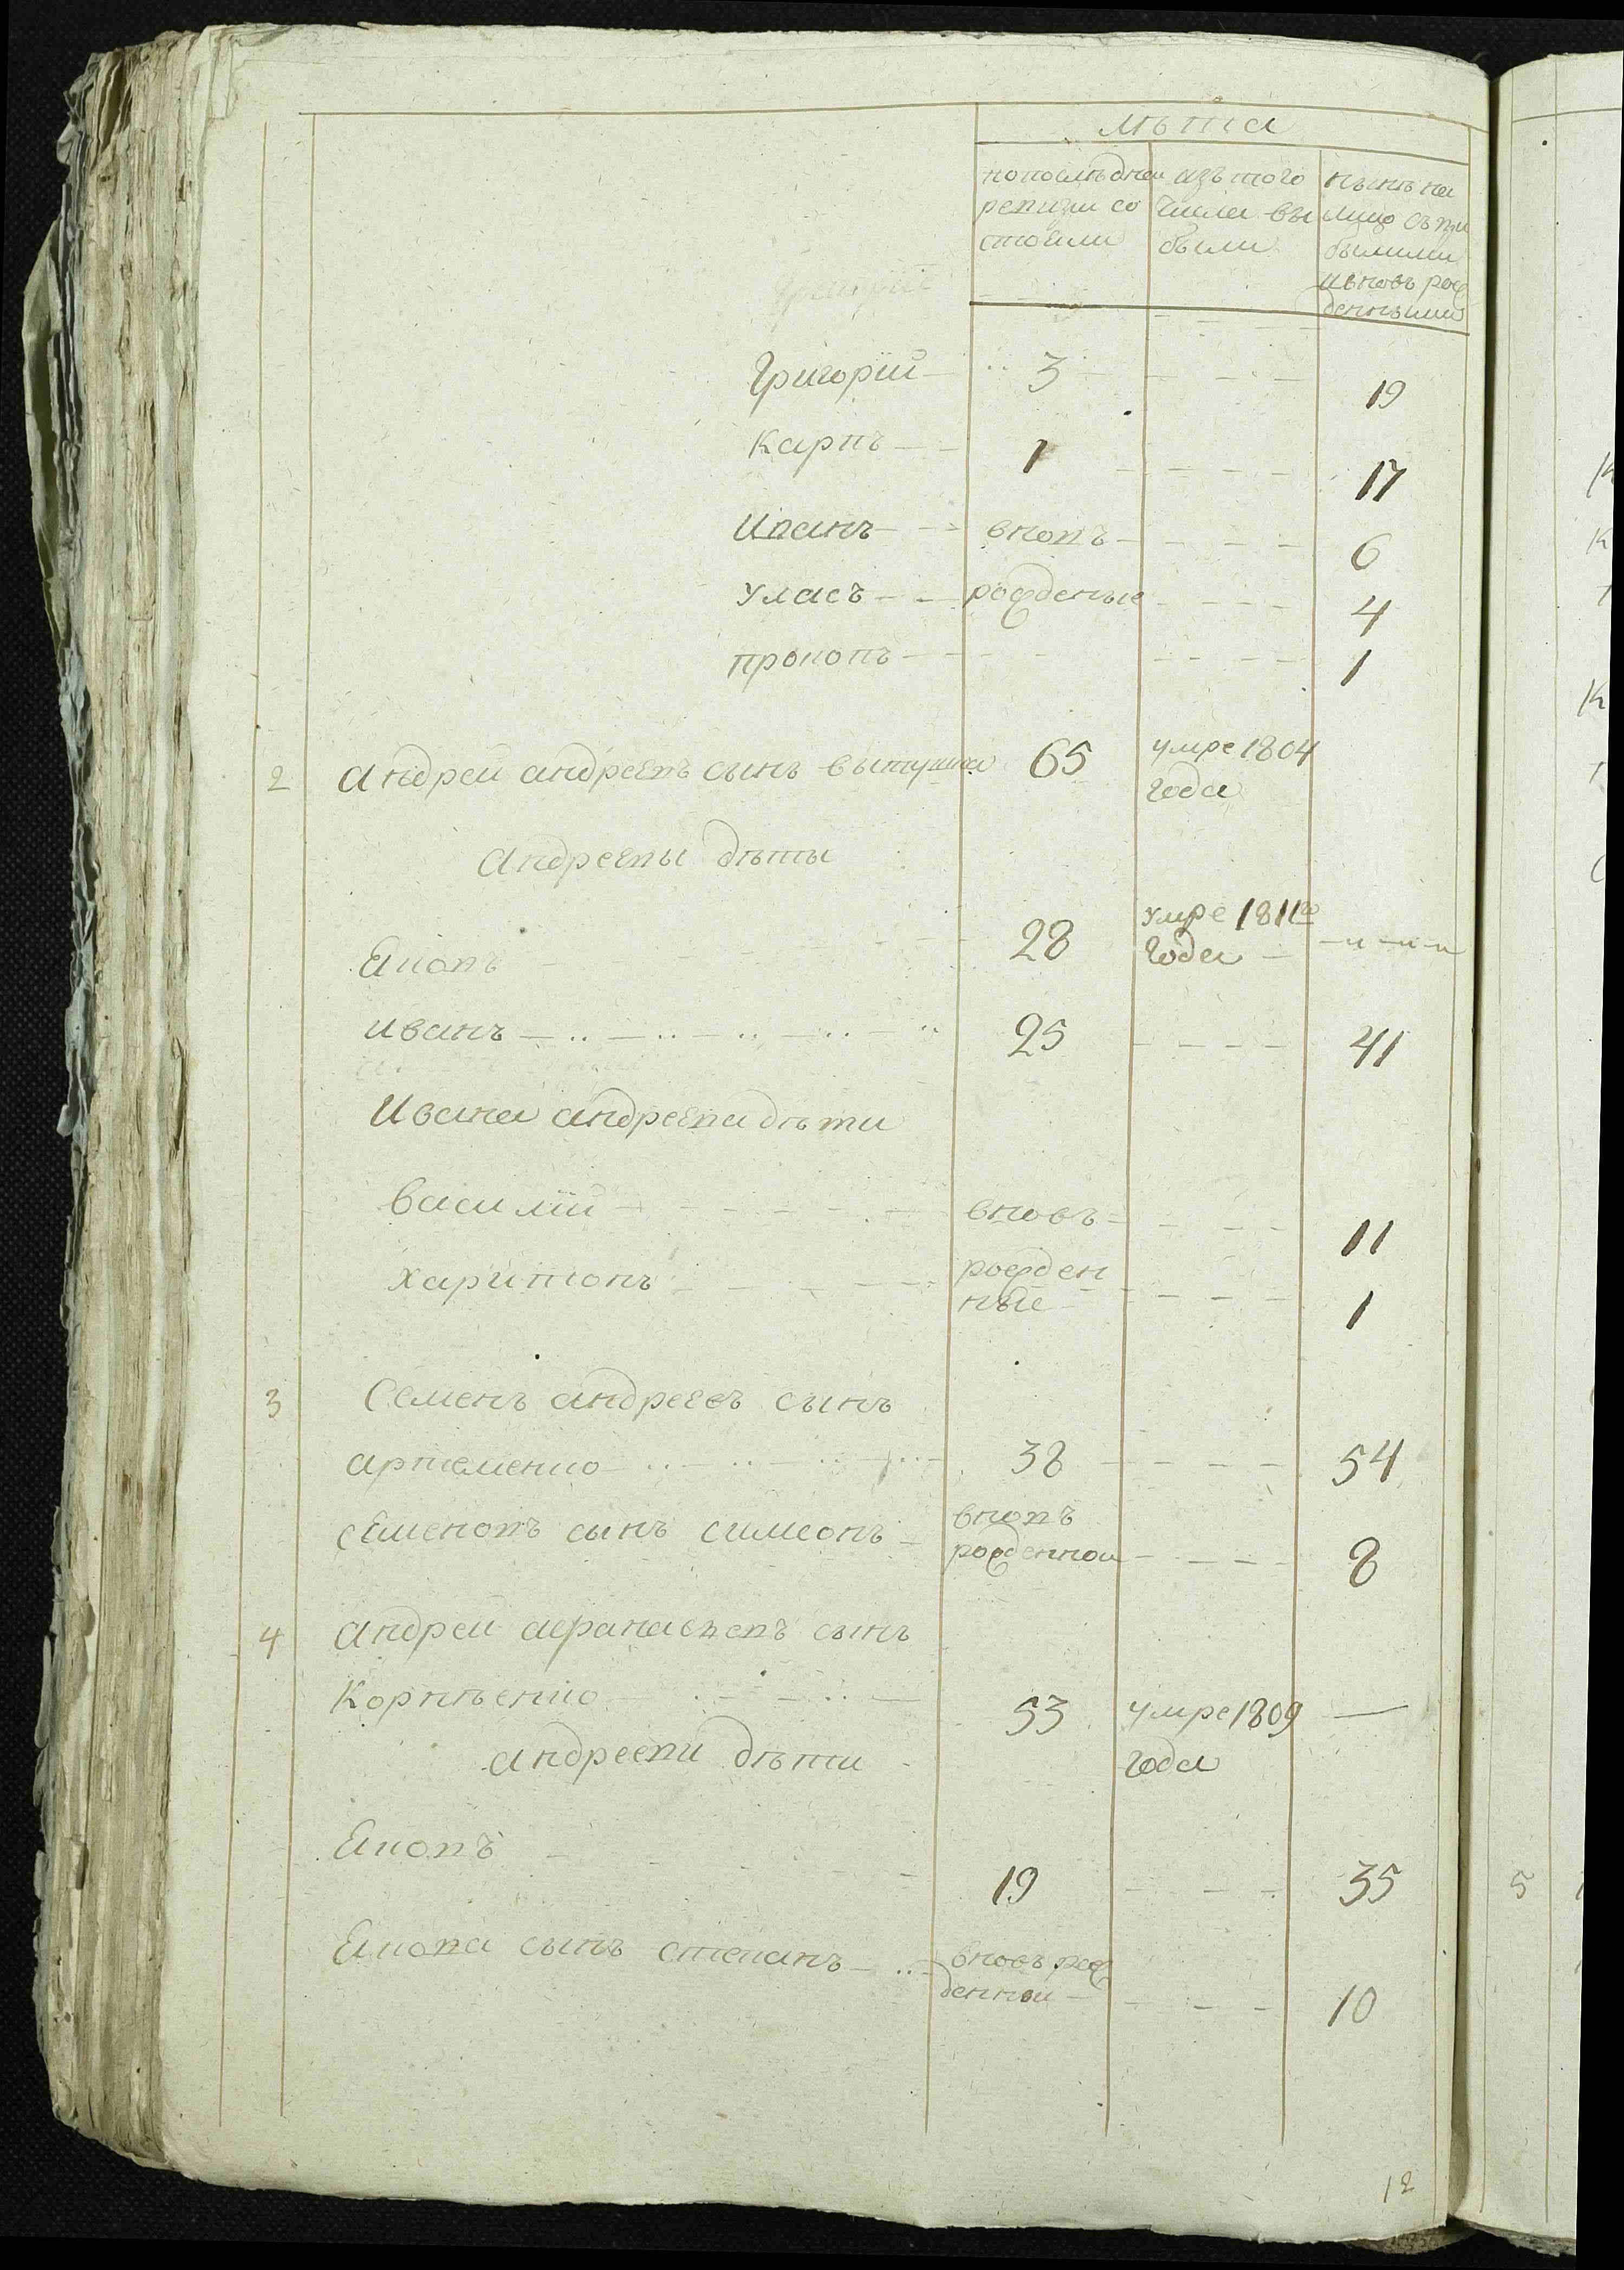 лѣта
попослѣдней ревизіи состояли
изътого числа выбыли
нынѣ на лицо съ прибылыми ивновь рожденными
Григорій 3 19
Карпъ 1 17
Иванъ вновъ 6
Уласъ рожденые 4
прокопъ 1
2 Андрей андреевъ сынъ 65 умре 1804 года
Андреевы дѣты
Яковъ 28 умре 1811го года
иванъ 25 41
Ивана андреева дѣти
Василій вновъ 11
харитонъ рожденные 1
3 Семенъ андреевъ сынъ
артеменко 38 54
Семеновъ сынъ симеонъ вновъ рожденной 8
4 Андрей афанасьевъ сынъ
Корнѣенко 53 умре 1809 года
андрееви дѣти
Яковъ 19 35
Якова сынъ степанъ вновъ рожденной 10
12
5